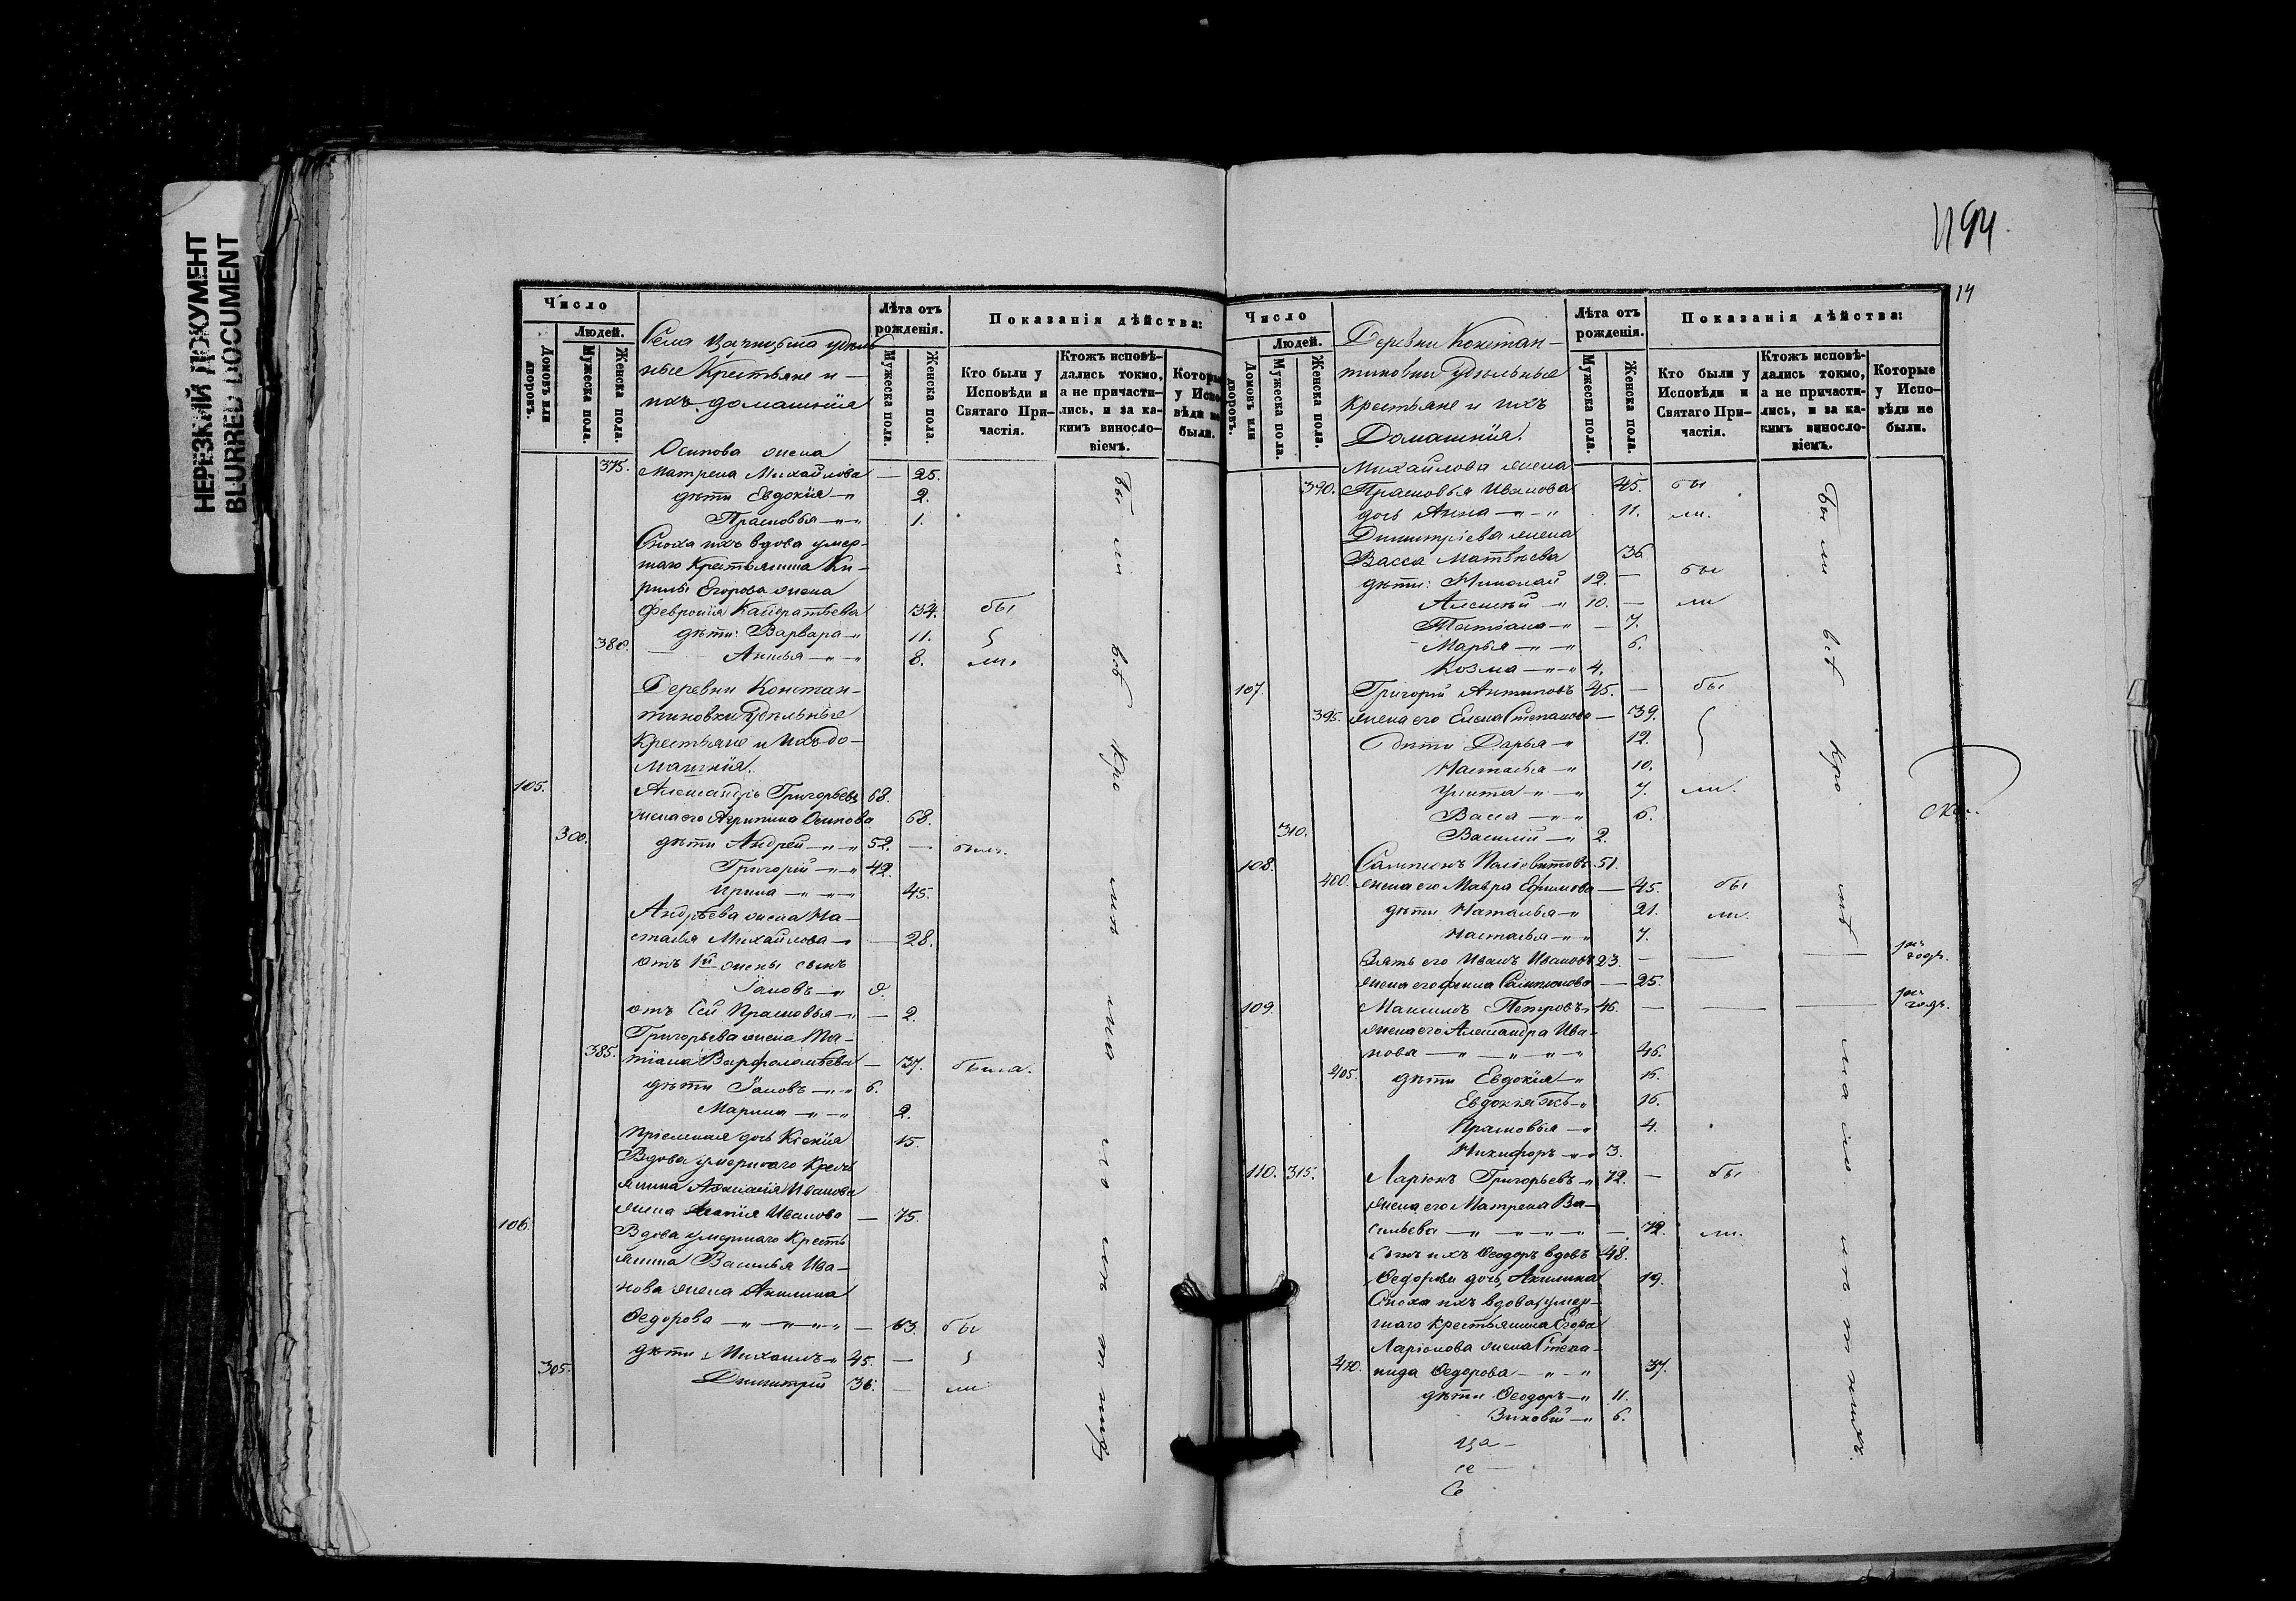 НЕРЕЗКИЙ ДОКУМЕНТ
BLURRED DOCUMENT
Число
Людей.
Домовъ или дворовъ.
Мужеска пола.
Женска пола.
Села удѣль
ные Крестьяне и
ихъ домашнія
Лѣта отъ рожденія.
Мужеска пола.
Женска пола.
Показанія дѣйства:
Кто были у Исповѣди и Святаго При-
частія.
Ктожъ исповѣ-
дались токмо,
а не причасти-
лись, и за ка-
кимъ виносло-
віемъ.
Которые
у Испо-
вѣди не
были.
Осипова жена
375. Матрена Михайлова — 25.
дѣти Евдокія —„ 2.
Прасковья —„—„ 1.
Сноха ихъ вдова умер-
шаго Крестьянина Ки-
рилы Егорова жена
Февронія 34. бы
дѣти: Варвара —„ 11.
380. 8. ли.
Деревни Констан-
тиновки Удѣльные
Крестьяне и Ихъ до-
машнія.
105. Александръ Григорьевъ 68.
жена его Агрипина Осипова 68.
300. дѣти Андрей —„—„ 52. — былъ.
Григорій —„—„ 42.
Ирина —„—„ 45.
Андрѣева жена На-
стасья Михайлова —„ — 28.
отъ 1й жены сынъ
Іаковъ —„
отъ сей Прасковья —„ — 2.
Григорьева жена Та-
385. тіана Варфоломѣева — 37. была.
дѣти Іаковъ —„—„ 6.
Марина —„—„ 2.
Пріемная дочь Ксенія 15.
Вдова умершаго Кресть
янина Иванова
жена Иванова — 75.
106. Вдова умершаго Кресть
янина Василья Ива-
нова жена Акилина
Ѳедорова —„—„—„ — 63. бы
305. дѣти: Михаилъ —„ 45. —
Димитрій 36. — ли
1194
14
Число
Людей.
Домовъ или дворовъ.
Мужеска пола.
Женска пола.
Деревни Констан-
тиновки Удѣльные
Крестьяне и ихъ
Домашнія.
Лѣта отъ рожденія.
Мужеска пола.
Женска пола.
Показанія дѣйства:
Кто были у Исповѣди и Святаго При-
частія.
Ктожъ исповѣ-
дались токмо,
а не причасти-
лись, и за ка-
кимъ виносло-
віемъ.
Которые
у Испо-
вѣди не
были.
Михайлова жена
390. Прасковья Иванова 45. бы
дочь Анна —„—„ 11. ли.
Димитріева жена
Васса Матвѣева 36
дѣти: Николай 12. — бы
Алексѣй —„ 10. — ли
Татіана —„ — 7.
Марья —„—„ 6.
Козма —„—„ 4.
107. Григорій Антиповъ 45. — бы
395. жена его Елена Степанова — 39.
дѣти Дарья —„ 12.
Настасья —„ 10.
Улита —„—„ 7. ли.
Васса —„—„ 6.
310. Василій —„ 2.
108. Сампсонъ 51.
400. жена его Мавра Ефимова — 45. бы
дѣти Наталья —„ 21. ли.
Настасья —„—„ 7.
Зять его Иванъ Ивановъ 23. — — —
жена его Сампсонова — 25.
109. Максимъ Петровъ —„ 46. — — —
жена его Александра Ива-
нова —„—„—„—„ 46.
405. дѣти Евдокія —„ 16.
Евдокія 16.
Прасковья —„ 4.
Никифоръ —„—„ 3.
110. 315. Ларіонъ Григорьевъ —„ 72. — бы
жена его Матрена Ва-
сильева —„—„—„—„ — 72. ли.
Сынъ ихъ Ѳеодоръ вдовъ 48.
Ѳедорова дочь Акилина 19.
Сноха ихъ вдова умер-
шаго крестьянина Егора
Ларіонова жена Степа-
410. нида Ѳедорова —„—„ 37.
дѣти Ѳеодоръ —„ 11.
Зиновій —„ 6.